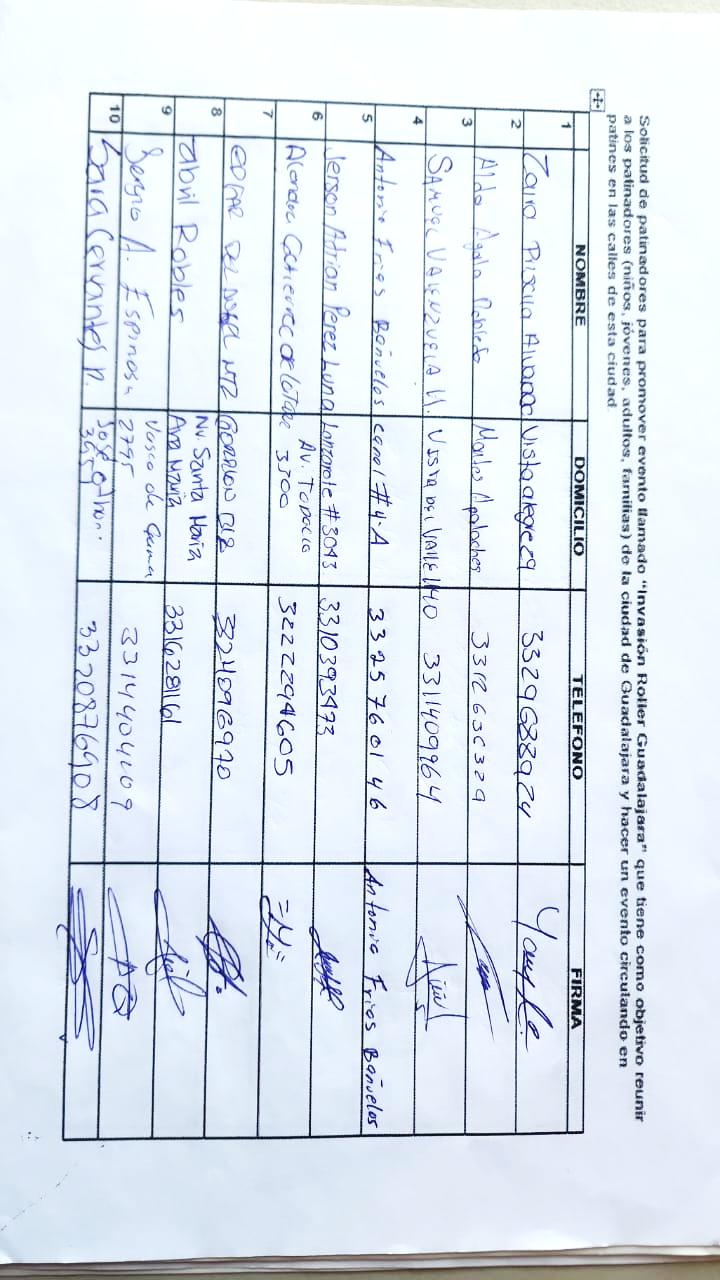 Solicitud de patinadores para promover evento llamado "Invasión Roller Guadalajara" que tiene como objetivo reunir
a los patinadores (niños, jóvenes, adultos, familias) de la ciudad de Guadalajara y hacer un evento circulando en
patines en las calles de esta ciudad.
NOMBRE DOMICILIO TELEFONO FIRMA
1 Alvarado Vista alegre 29 3329688924
2 Aldo Ayala Robledo Montes Apalaches 3312636329
3 SAMUEL VALENZUELA M. VISTA DEL VALLE 1140 3311409964
4 Antonio Frias Bañuelos canal # 4-A 3325760146 Antonio Frias Bañuelos
5 Jerson Adrian Perez Luna Lanzarote # 3043 3310393493
6 Av. Topacio 3300 3222294605
7 EDGAR MTZ 3324096970
8 abril Robles Nv. Santa Maria Ana Maria 331628161
9 Sergio A. Espinosa Vasco de Gama 2795
10 Sara Cervantes P. 3320876908